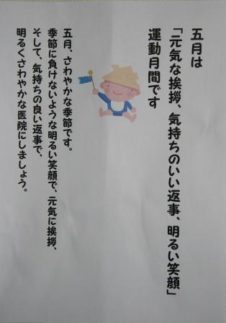 五月は
「元気な挨拶、気持ちのいい返事、明るい笑顔」
運動月間です
五月、さわやかな季節です。
季節に負けないような明るい笑顔で、元気に挨拶、
そして、気持ちの良い返事で、
明るくさわやかな医院にしましょう。